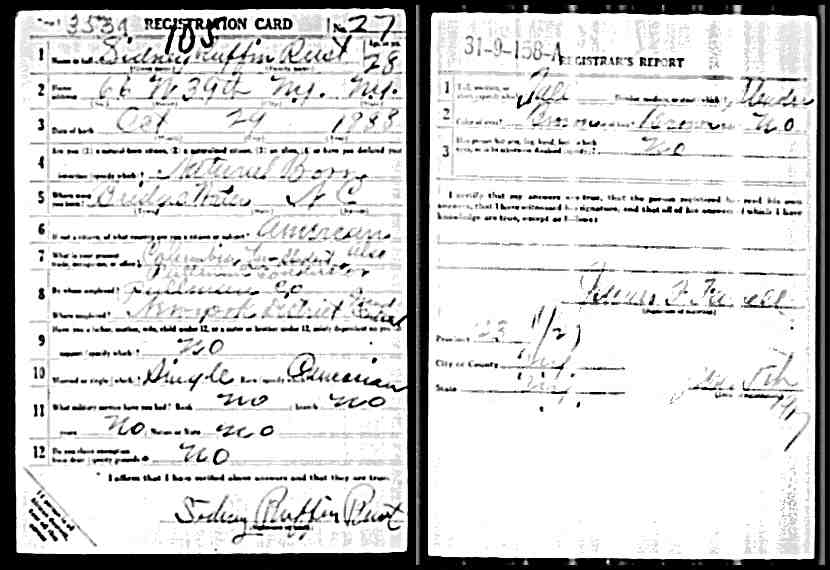 3534 REGISTRATION CARD No. 27
105
1 Sidney Ruffin Rust 28
2 Home address 66 W 39th N.Y. N.Y.
3 Date of birth Oct 29 1888
Are you (1) a natural born citizen, (2) a naturalized citizen, (3) an alien, (4) or have you declared your
4 intention (specify which)? Natural Born
5 Where were you born? Bridgewater N C
6 If not a citizen, of what country are you a citizen or subject? American
7 What is your present trade, occupation, or office? Columbia Student also
Pullman Conductor
8 By whom employed? Pullman Co
Where employed? New York District Grand Central
Have you a father, mother, wife, child under 12, or a sister or brother under 12, solely dependent on you for
9 support (specify which)? NO
10 Married or single (which)? Single Race (specify which)? Caucasian
11 What military service have you had? Rank NO branch NO
years NO Nation or State NO
12 Do you claim exemption from draft (specify grounds)? NO
I affirm that I have verified above answers and that they are true.
Sidney Ruffin Rust
31-9-158-A REGISTRAR'S REPORT
1 Tall, medium, or short (specify which)? Tall Slender, medium, or stout (which)? Slender
2 Color of eyes? Brown Color of hair? Brown Bald? NO
3 Has person lost arm, leg, hand, foot, or both eyes, or is he otherwise disabled (specify)? No
I certify that my answers are true, that the person registered has read his own
answers, that I have witnessed his signature, and that all of his answers of which I have
knowledge are true, except as follows:
Precinct 23
City or County N.Y.
State N.Y.